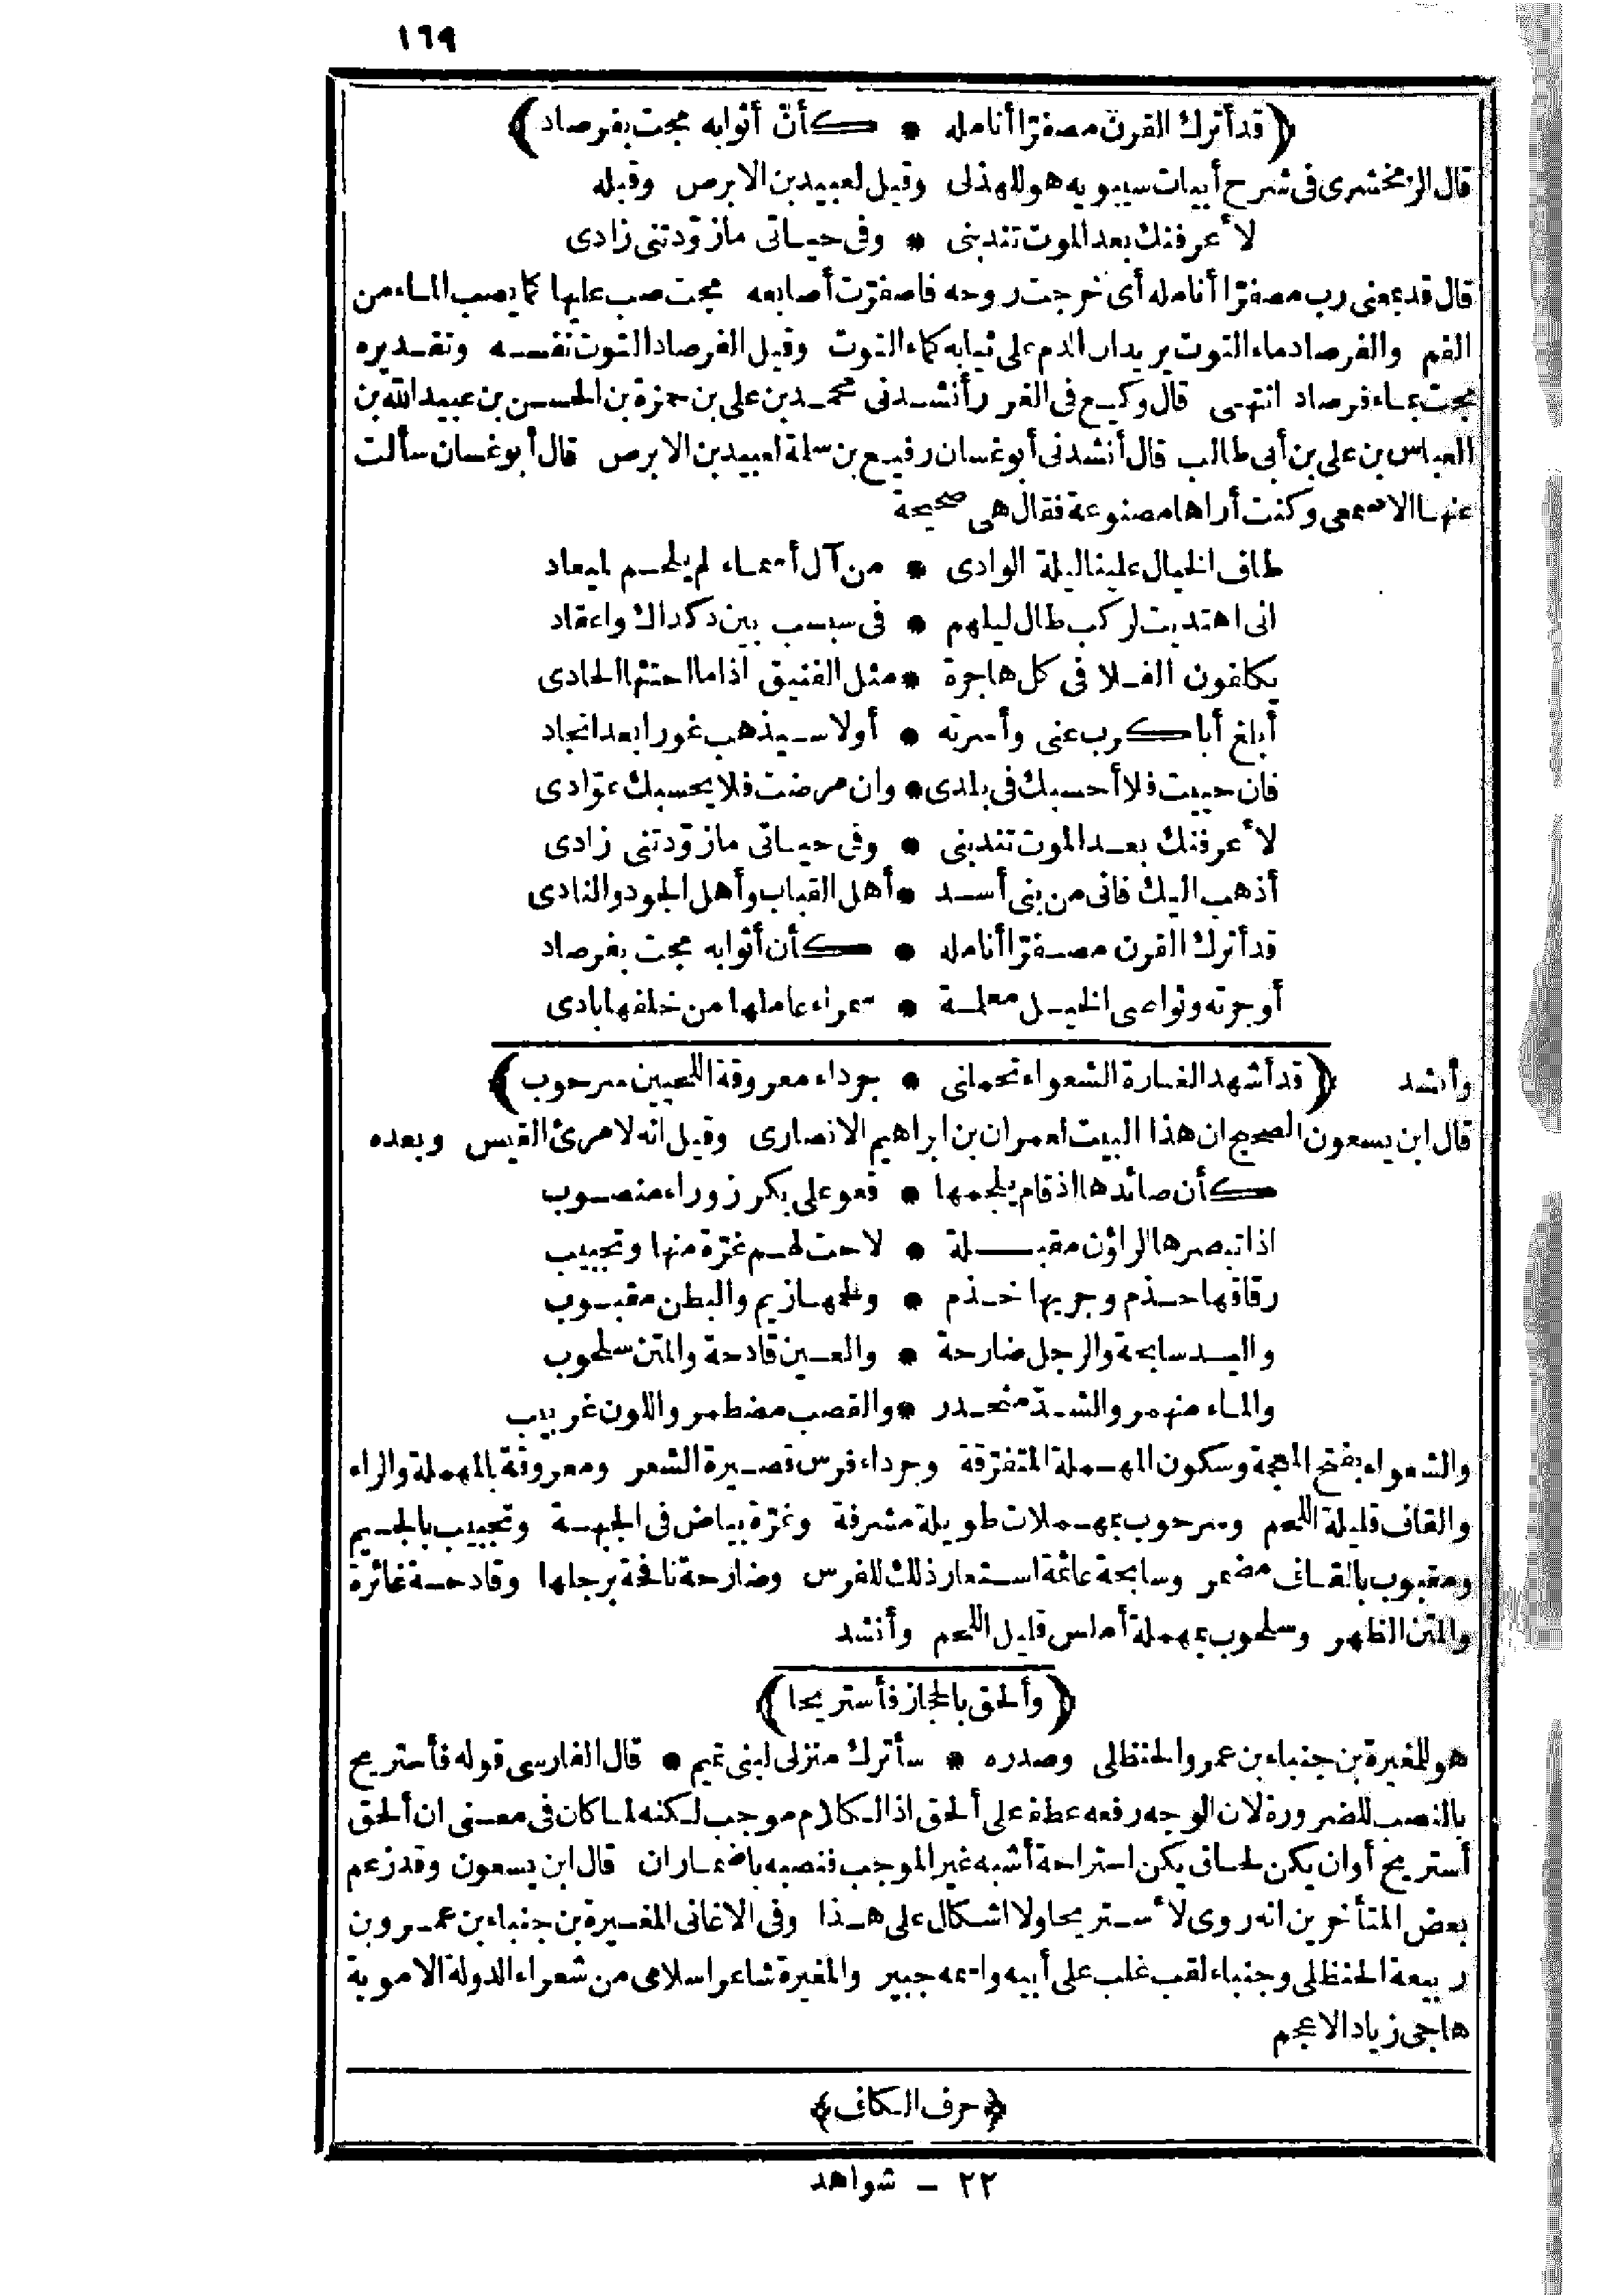 ١٦٩
(قد أترك القرن مصفرّا أنامله * كأنّ أثوابه مجت بفرصاد)
قال الزمخشرى فى شرح أبيات سيبويه هو للهذلى وقيل لعبيد بن الابرص وقبله
لا أعرفنك بعد الموت تندبنى * وفى حياتى ما زوّدتنى زادى
قال قد بمعنى رب مصفرّا أنامله أى خرجت روحه فاصفرّت أصابعه مجت صب عليها كما يصب الماء من
الفم والفرصاد ماء التوت يريد ان الدم على ثيابه كماء التوت وقيل الفرصاد التوت نفسه وتقديره
مجت بماء فرصاد انتهى قال وكيع فى الغرر أنشدنى محمد بن على بن حمزة بن الحسن بن عبيد الله بن
العباس بن على بن أبى طالب قال أنشدنى أبو غسان رفيع بن سلمة لعبيد بن الابرص قال أبو غسان سألت
عنها الاصمعى وكنت أراها مصنوعة فقال هى صحيحة
طاف الخيال علينا ليلة الوادى * من آل أسماء لم يلمم لميعاد
انى اهتديت لركب طال ليلهم * فى سبسب بين دكداك واعقاد
يكلفون الفلا فى كل هاجرة * مثل الفنيق اذا ما احتثها الحادى
أبلغ أبا كرب عنى وأسرته * أولا سيذهب غورا بعد انجاد
فان حييت فلا أحسبك فى بلدى * وان مرضت فلا يحسبك عوّادى
لا أعرفنك بعد الموت تندبنى * وفى حياتى ما زوّدتنى زادى
أذهب اليك فانى من بنى أسد * أهل القباب وأهل الجود والنادى
قد أترك القرن مصفرّا أنامله * كأن أثوابه مجت بفرصاد
أوجرته ونواصى الخيل معلمة * سمراء عاملها من خلفها بادى
وأنشد (قد أشهد الغارة الشعواء تحملنى * جرداء معروقة اللحيين سرحوب)
قال ابن يسعون الصحيح ان هذا البيت لعمران بن ابراهيم الانصارى وقيل انه لامرئ القيس وبعده
كأن صائدها اذ قام يلجمها * قعو على بكر زوراء منصوب
اذا تبصرها الراؤن مقبلة * لاحت لهم غرّة منها وتجبيب
رقاقها حذم وجريها خذم * ولحمها زيم والبطن مقبوب
واليد سابحة والرجل ضارحة * والعين قادحة والمتن سلحوب
والماء منهمر والشدّ منحدر * والقصب مضطمر واللون غربيب
والشعواء بفتح المعجمة وسكون المهملة المتفرّقة وجرداء فرس قصيرة الشعر ومعروقة بالمهملة والراء
والقاف قليلة اللحم وسرحوب بمهملات طويلة مشرفة وغرّة بياض فى الجبهة وتجبيب بالجيم
ومقبوب بالقاف مضمر وسابحة عائمة استعار ذلك للفرس وضارحة نافحة برجلها وقادحة غائرة
والمتن الظهر وسلحوب بمهملة أملس قليل اللحم وأنشد
(وألحق بالحجاز فأستريحا)
هو للمغيرة بن حنباء بن عمرو الحنظلى وصدره * سأترك منزلى لبنى تميم * قال الفارسى قوله فأستريح
بالنصب للضرورة لان الوجه رفعه عطفا على ألحق اذ الكلام موجب لكنه لما كان فى معنى ان ألحق
أستريح أو ان يكن لحاقى يكن استراحة أشبه غير الموجب فنصبه باضمار ان قال ابن يسعون وقد زعم
بعض المتأخرين انه روى لأستريحا ولا اشكال على هذا وفى الاغانى المغيرة بن حنباء بن عمرو بن
ربيعة الحنظلى وحنباء لقب غلب على أبيه واسمه جبير والمغيرة شاعر اسلامى من شعراء الدولة الاموية
هاجى زياد الاعجم
﴿حرف الكاف﴾
٢٢ - شواهد